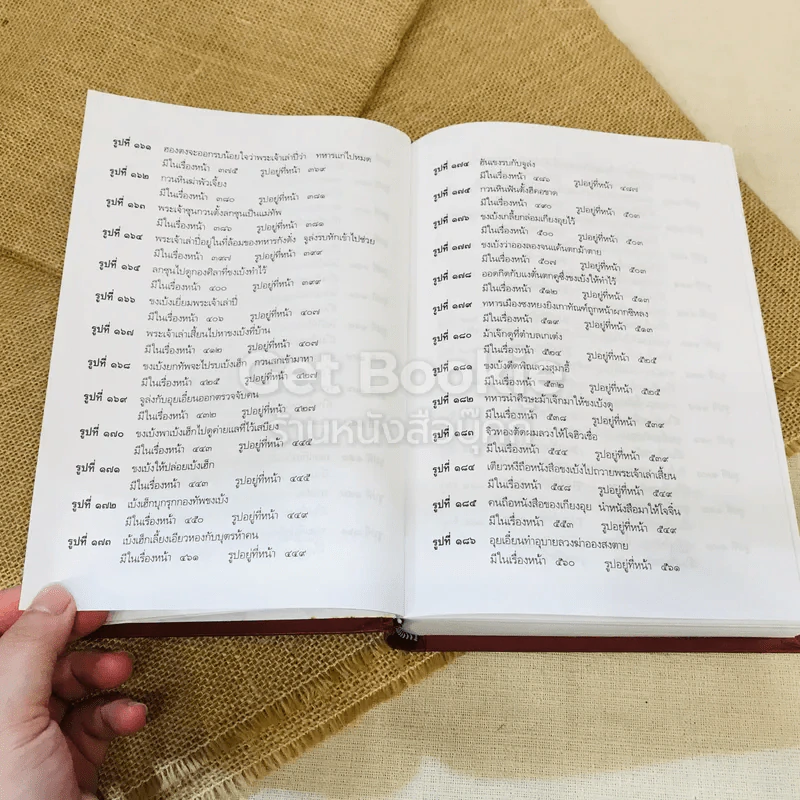 รูปที่ ๑๖๑ ฮองตงจะออกรบน้อยใจว่าพระเจ้าเล่าปี่ว่า ทหารแก่ไปหมด
มีในเรื่องหน้า ๓๗๕ รูปอยู่ที่หน้า ๓๖๙
รูปที่ ๑๖๒ กวนหินฆ่าพัวเจี้ยง
มีในเรื่องหน้า ๓๘๐ รูปอยู่ที่หน้า ๓๘๑
รูปที่ ๑๖๓ พระเจ้าซุนกวนตั้งลกซุนเป็นแม่ทัพ
มีในเรื่องหน้า ๓๘๖ รูปอยู่ที่หน้า ๓๘๑
รูปที่ ๑๖๔ พระเจ้าเล่าปี่อยู่ในที่ล้อมของทหารกังตั๋ง จูล่งรบหักเข้าไปช่วย
มีในเรื่องหน้า ๓๙๙ รูปอยู่ที่หน้า ๓๙๙
รูปที่ ๑๖๕ ลกซุนไปดูกองศิลาที่ขงเบ้งทำไว้
มีในเรื่องหน้า ๔๐๐ รูปอยู่ที่หน้า ๓๙๙
รูปที่ ๑๖๖ ขงเบ้งเยี่ยมพระเจ้าเล่าปี่
มีในเรื่องหน้า ๔๐๖ รูปอยู่ที่หน้า ๔๐๗
รูปที่ ๑๖๗ พระเจ้าเล่าเสี้ยนไปหาขงเบ้งที่บ้าน
มีในเรื่องหน้า ๔๑๒ รูปอยู่ที่หน้า ๔๐๗
รูปที่ ๑๖๘ ขงเบ้งยกทัพจะไปรบเบ้งเฮ็ก กวนสกเข้ามาหา
มีในเรื่องหน้า ๔๒๕ รูปอยู่ที่หน้า ๔๒๗
รูปที่ ๑๖๙ จูล่งกับอุยเอี๋ยนออกตรวจจับคน
มีในเรื่องหน้า ๔๓๒ รูปอยู่ที่หน้า ๔๒๗
รูปที่ ๑๗๐ ขงเบ้งพาเบ้งเฮ็กไปดูค่ายแลที่ไว้เสบียง
มีในเรื่องหน้า ๔๔๓ รูปอยู่ที่หน้า ๔๔๕
รูปที่ ๑๗๑ ขงเบ้งให้ปล่อยเบ้งเฮ็ก
มีในเรื่องหน้า ๔๔๓ รูปอยู่ที่หน้า ๔๔๕
รูปที่ ๑๗๒ เบ้งเฮ็กบุกรุกกองทัพขงเบ้ง
มีในเรื่องหน้า ๔๕๐ รูปอยู่ที่หน้า ๔๔๙
รูปที่ ๑๗๓ เบ้งเฮ็กเลี้ยงเอียวหองกับบุตรห้าคน
มีในเรื่องหน้า ๔๖๑ รูปอยู่ที่หน้า ๔๔๙
รูปที่ ๑๗๔ ฮันเขงรบกับจูล่ง
มีในเรื่องหน้า ๔๘๖ รูปอยู่ที่หน้า ๔๘๗
รูปที่ ๑๗๕ กวนหินฟันตั้งฮีคอขาด
มีในเรื่องหน้า ๔๙๐ รูปอยู่ที่หน้า ๕๐๓
รูปที่ ๑๗๖ ขงเบ้งเกลี้ยกล่อมเกียงอุยไว้
มีในเรื่องหน้า ๕๐๐ รูปอยู่ที่หน้า ๕๐๓
รูปที่ ๑๗๗ ขงเบ้งว่าอองลองจนแค้นตกม้าตาย
มีในเรื่องหน้า ๕๐๗ รูปอยู่ที่หน้า ๕๐๓
รูปที่ ๑๗๘ ออดกิดกับแงตันตกคูซึ่งขงเบ้งให้ทำไว้
มีในเรื่องหน้า ๕๑๒ รูปอยู่ที่หน้า ๕๑๓
รูปที่ ๑๗๙ ทหารเมืองซงหยงยิงเกาทัณฑ์ถูกหน้าผากซิหลง
มีในเรื่องหน้า ๕๑๙ รูปอยู่ที่หน้า ๕๑๓
รูปที่ ๑๘๐ ม้าเจ๊กดูที่ตำบลเกเต๋ง
มีในเรื่องหน้า ๕๒๔ รูปอยู่ที่หน้า ๕๒๕
รูปที่ ๑๘๑ ขงเบ้งดีดพิณลวงสุมาอี้
มีในเรื่องหน้า ๕๓๒ รูปอยู่ที่หน้า ๕๒๕
รูปที่ ๑๘๒ ทหารนำศีรษะม้าเจ๊กมาให้ขงเบ้งดู
มีในเรื่องหน้า ๕๓๘ รูปอยู่ที่หน้า ๕๓๙
รูปที่ ๑๘๓ จิวหองตัดผมลวงให้โจฮิวเชื่อ
มีในเรื่องหน้า รูปอยู่ที่หน้า ๕๓๙
รูปที่ ๑๘๔ เตียวหงีถือหนังสือขงเบ้งไปถวายพระเจ้าเล่าเสี้ยน
มีในเรื่องหน้า ๕๔๘ รูปอยู่ที่หน้า ๕๔๙
รูปที่ ๑๘๕ คนถือหนังสือของเกียงอุย นำหนังสือมาให้โจจิ๋น
มีในเรื่องหน้า ๕๕๓ รูปอยู่ที่หน้า ๕๔๙
รูปที่ ๑๘๖ อุยเอี๋ยนทำอุบายลวงฆ่าอองสงตาย
มีในเรื่องหน้า ๕๖๐ รูปอยู่ที่หน้า ๕๖๑
Get Bookie
ร้านหนังสือบุ๊กกี้